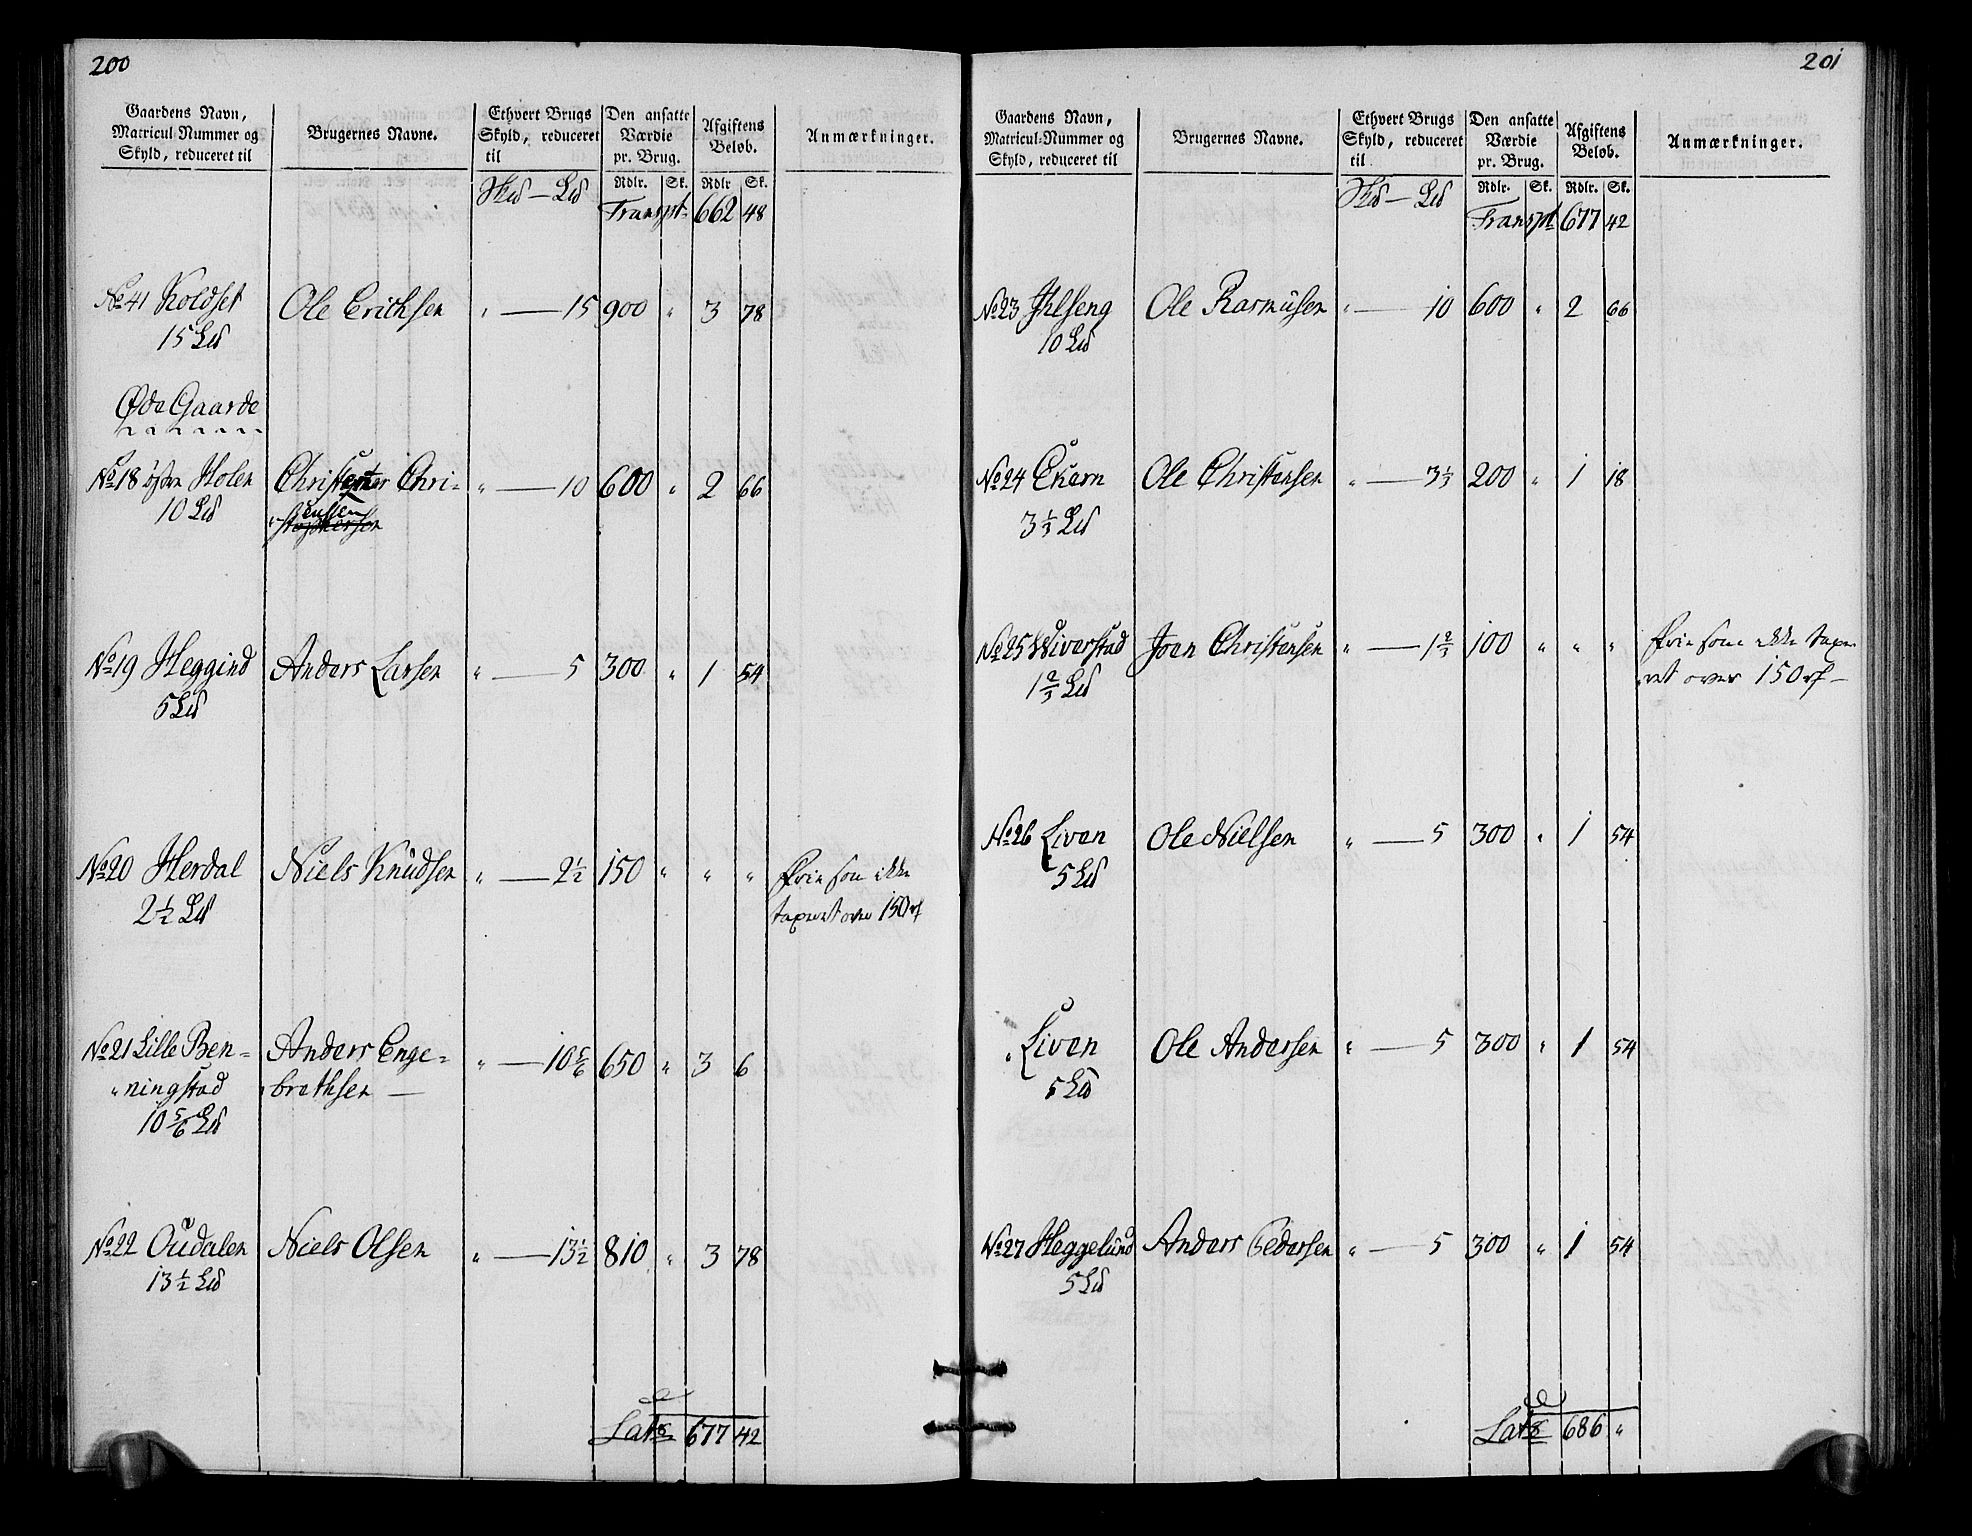 200
Gaardens Navn, Matricul-Nummer og Skyld, reduceret til | Brugernes Navne. | Ethvert Brugs Skyld, reduceret til | Den ansatte Værdie pr. Brug. | Afgiftens Beløb. | Anmærkninger.
Skd — Ld | Rdlr. | Sk. | Rdlr | Sk.
Transpt. 662 48
No 41 Koldset | Ole Erichsen | " — 15 | 900 | " | 3 | 78
15 Ld
Øde Gaarde
No 18 østre Holen | Christen Chri- | " — 10 | 600 | " | 2 | 66
10 Ld
No 19 Heggind | Anders Larsen | " — 5 | 300 | " | 1 | 54
5 Ld
No 20 Herdal | Niels Knudsen | " — 2 1/2 | 150 | " | " | " | Frie som ikke
2 1/2 Ld | taxeret over 150 rf
No 21 Lille Ben= | Anders Enge= | " — 10 5/6 | 650 | " | 3 | 6
"ningstad | "brethsen —
10 5/6 Ld
No 22 Oudalen | Niels Olsen | " — 13 1/2 | 810 | " | 3 | 78
13 1/2 Ld
Lats 677 42
201
Gaardens Navn, Matricul-Nummer og Skyld, reduceret til | Brugernes Navne. | Ethvert Brugs Skyld, reduceret til | Den ansatte Værdie pr. Brug. | Afgiftens Beløb. | Anmærkninger.
Skd — Ld | Rdlr. | Sk. | Rdlr. | Sk.
Transpt 677 42
No 23 Ihlseng | Ole Rasmusen | " — 10 | 600 | " | 2 | 66
10 Ld
No 24 Ekern | Ole Christensen | " — 3 1/3 | 200 | " | 1 | 18
3 1/3 Ld
No 25 Wiverstad | Joen Christensen | " — 1 2/3 | 100 | " | " | " | Frie som ikke taxe-
1 2/3 Ld | "ret over 150 rf —
No 26 Liven | Ole Nielsen | " — 5 | 300 | " | 1 | 54
5 Ld
" Liven | Ole Andersen | " — 5 | 300 | " | 1 | 54
5 Ld
No 27 Heggelund | Anders Pedersen | " — 5 | 300 | " | 1 | 54
5 Ld
Lats 686 "